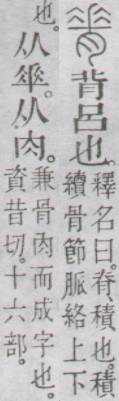 脊 背呂也。
釋名曰。脊、積也。積
續骨節脈絡上下
也。
从𠦬。从肉。
兼骨肉而成字也。
資昔切。十六部。